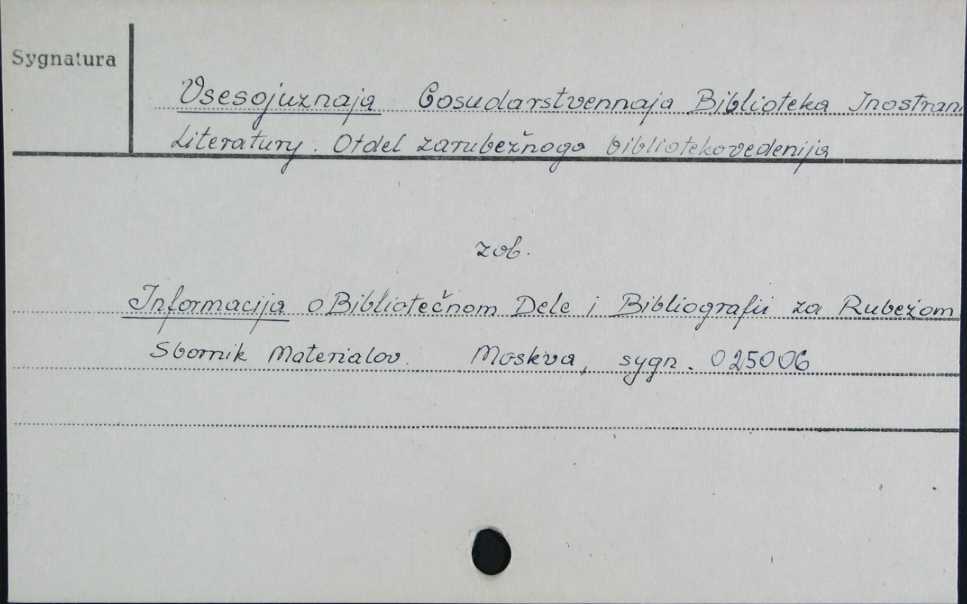 Sygnatura
Vsesojuznaja Gosudarstvennaja Biblioteka Inostrann
Literatury. Otdel zarubežnogo bibliotekovedenija
zob.
Informacija o Bibliotečnom Dele i Bibliografii za Rubežom
Sbornik Materialov. Moskva, sygn. 025006